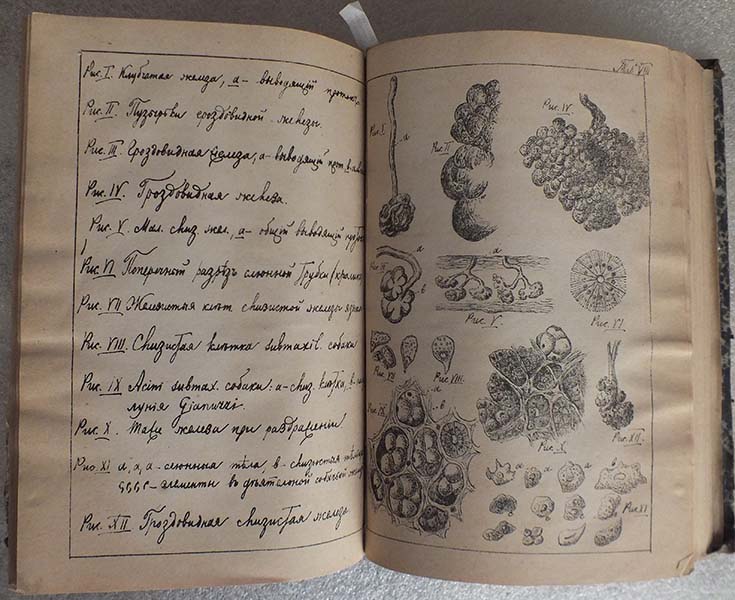 Рис. I. Клубчатая железа, а – выводящій проток
Рис. II. Пузырьки гроздовидной железы.
Рис. III. Гроздовидная железа, а – выводящій прот.
Рис. IV. Гроздовидная железа.
Рис. V. Мал. слиз. жел., а – общій выводящій
Рис. VI Поперечный разрѣзъ слюнной трубки (кролика
Рис. VII Железистыя клѣт. слизистой железы
Рис. VIII. Слизистая клѣтка submaxil. собаки
Рис. IX Acini submax. собаки: а – слиз. клѣтки, в –
лунія Gianuzzi.
Рис. X. Таже железа при раздраженіи
Рис. XI а, а, а – слюнныя тѣла, в – слизистыя тѣльца
сссс – элементы въ дѣятельной собачьей
Рис. XII Гроздовидная слизистая железа
Таб. VIII
Рис. I.
а
Рис. II
Рис. IV.
Рис. III
а
в
а
Рис. V.
Рис. VI.
Рис. VII
Рис. VIII.
Рис. IX
а
в
Рис. X.
Рис. XII.
а
а
а
в
Рис. XI